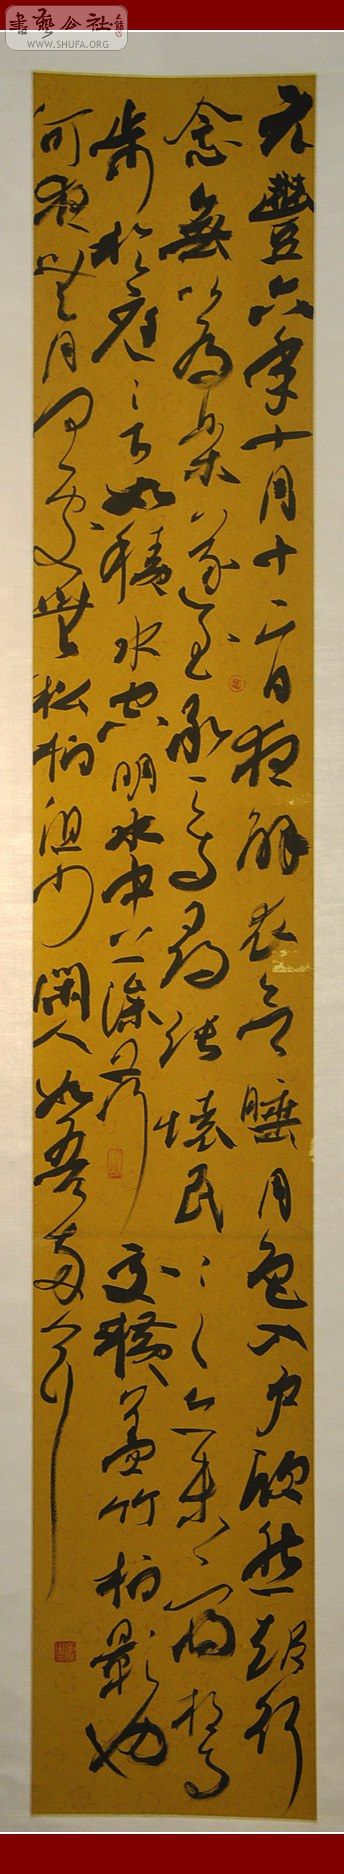 元豐六年十月十二日夜解衣欲睡月色入户欣然起行
念無以為樂遂至承天寺尋張懷民〻亦未寢相與
步於庭〻下如積水空明水中藻荇交橫蓋竹柏影也
何夜無月何處無松柏但少閑人如吾兩人耳
書藝公社
WWW.SHUFA.ORG